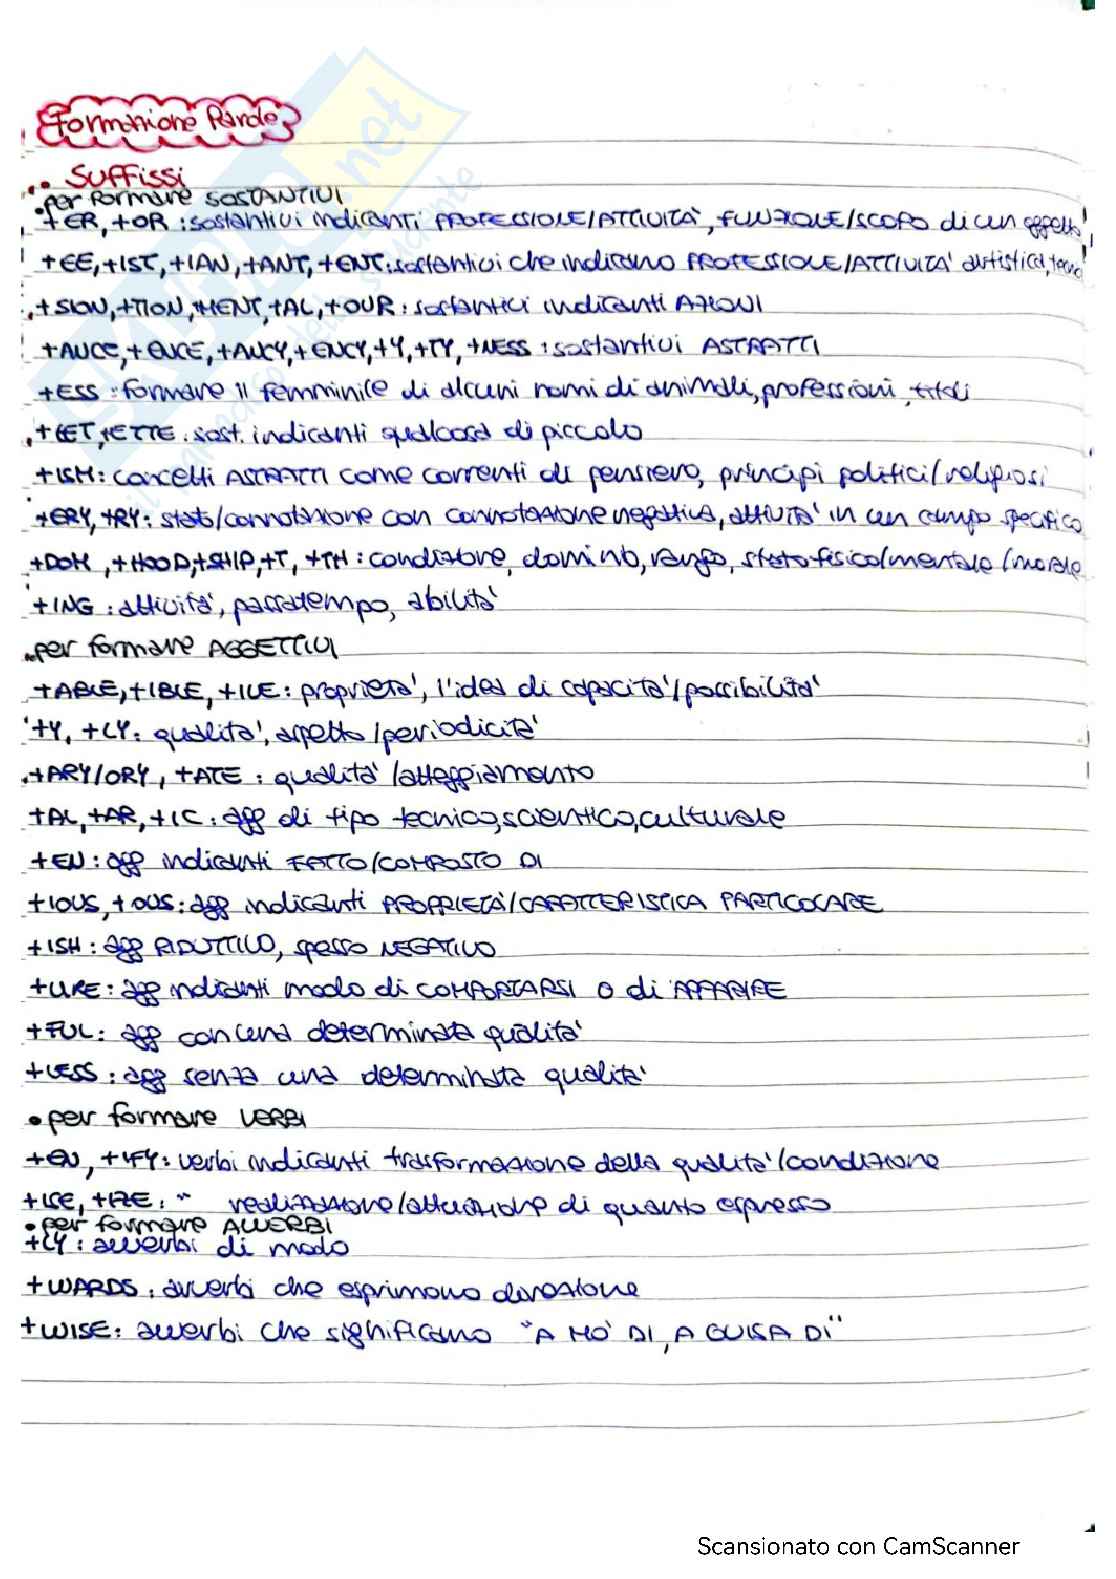 Formazione Parole
Suffissi
• per formare SOSTANTIVI
+ER, +OR : sostantivi indicanti PROFESSIONE/ATTIVITÀ, FUNZIONE/SCOPO di un oggetto
+EE, +IST, +IAN, +ANT, +ENT: sostantivi che indicano PROFESSIONE/ATTIVITÀ artistica,
+SION, +TION, +MENT, +AL, +OUR : sostantivi indicanti AZIONI
+ANCE, +ENCE, +ANCY, +ENCY, +Y, +TY, +NESS : sostantivi ASTRATTI
+ESS : formare il femminile di alcuni nomi di animali, professioni, titoli
+LET, +ETTE. sost. indicanti qualcosa di piccolo
+ISM: concetti ASTRATTI come correnti di pensiero, principi politici/religiosi
+ERY, +RY: stato/connotazione con connotazione negativa, attività in un campo specifico
+DOM, +HOOD, +SHIP, +T, +TH : condizione, dominio, rango, stato fisico/mentale/morale
+ING : attività, passatempo, abilità
• per formare AGGETTIVI
+ABLE, +IBLE, +ILE: proprietà, l'idea di capacità/possibilità
+Y, +LY: qualità, aspetto/periodicità
+ARY/ORY, +ATE : qualità/atteggiamento
+AL, +AR, +IC : agg di tipo tecnico, scientifico, culturale
+EN : agg indicanti FATTO/COMPOSTO DI
+IOUS, +OUS: agg indicanti PROPRIETÀ/CARATTERISTICA PARTICOLARE
+ISH : agg RIDUTTIVO, spesso NEGATIVO
+URE: agg indicanti modo di COMPORTARSI o di APPARIRE
+FUL: agg con una determinata qualità
+LESS : agg senza una determinata qualità
• per formare VERBI
+EN, +IFY: verbi indicanti trasformazione della qualità/condizione
+ISE, +IZE : " realizzazione/attuazione di quanto espresso
• per formare AVVERBI
+LY : avverbi di modo
+WARDS : avverbi che esprimono direzione
+WISE: avverbi che significano "A MO' DI, A GUISA DI"
Scansionato con CamScanner